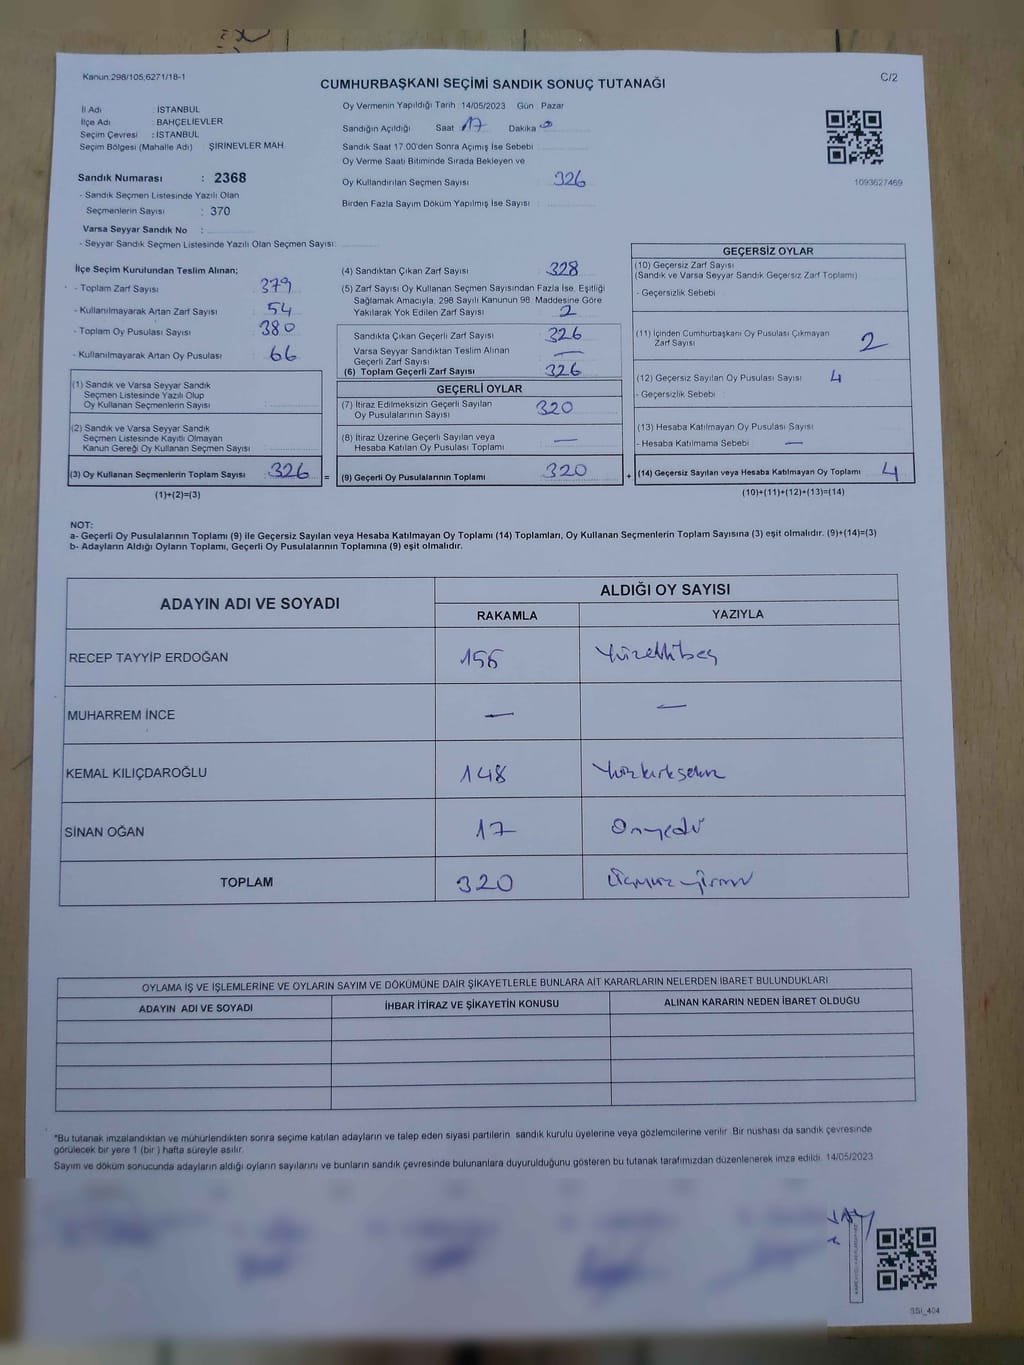 Kanun:298/105;6271/18-1
C/2
CUMHURBAŞKANI SEÇİMİ SANDIK SONUÇ TUTANAĞI
İl Adı : İSTANBUL
İlçe Adı : BAHÇELİEVLER
Seçim Çevresi : İSTANBUL
Seçim Bölgesi (Mahalle Adı) : ŞİRİNEVLER MAH.
Sandık Numarası : 2368
- Sandık Seçmen Listesinde Yazılı Olan
Seçmenlerin Sayısı : 370
Varsa Seyyar Sandık No :
- Seyyar Sandık Seçmen Listesinde Yazılı Olan Seçmen Sayısı:
Oy Vermenin Yapıldığı Tarih 14/05/2023 Gün : Pazar
Sandığın Açıldığı Saat 17 Dakika
Sandık Saat 17.00'den Sonra Açımış İse Sebebi
Oy Verme Saati Bitiminde Sırada Bekleyen ve
Oy Kullandırılan Seçmen Sayısı 326
Birden Fazla Sayım Döküm Yapılmış İse Sayısı :
1093627469
İlçe Seçim Kurulundan Teslim Alınan;
- Toplam Zarf Sayısı 379
- Kullanılmayarak Artan Zarf Sayısı 54
- Toplam Oy Pusulası Sayısı 380
- Kullanılmayarak Artan Oy Pusulası 66
(1) Sandık ve Varsa Seyyar Sandık
Seçmen Listesinde Yazılı Olup
Oy Kullanan Seçmenlerin Sayısı :
(2) Sandık ve Varsa Seyyar Sandık
Seçmen Listesinde Kayıtlı Olmayan
Kanun Gereği Oy Kullanan Seçmen Sayısı
(3) Oy Kullanan Seçmenlerin Toplam Sayısı 326 =
(1)+(2)=(3)
(4) Sandıktan Çıkan Zarf Sayısı 328
(5) Zarf Sayısı Oy Kullanan Seçmen Sayısından Fazla İse, Eşitliği
Sağlamak Amacıyla, 298 Sayılı Kanunun 98. Maddesine Göre
Yakılarak Yok Edilen Zarf Sayısı 2
Sandıkta Çıkan Geçerli Zarf Sayısı 326
Varsa Seyyar Sandıktan Teslim Alınan
Geçerli Zarf Sayısı —
(6) Toplam Geçerli Zarf Sayısı 326
GEÇERLİ OYLAR
(7) İtiraz Edilmeksizin Geçerli Sayılan
Oy Pusulalarının Sayısı 320
(8) İtiraz Üzerine Geçerli Sayılan veya
Hesaba Katılan Oy Pusulası Toplamı —
(9) Geçerli Oy Pusulalarının Toplamı 320 +
GEÇERSİZ OYLAR
(10) Geçersiz Zarf Sayısı
(Sandık ve Varsa Seyyar Sandık Geçersiz Zarf Toplamı)
- Geçersizlik Sebebi
(11) İçinden Cumhurbaşkanı Oy Pusulası Çıkmayan
Zarf Sayısı 2
(12) Geçersiz Sayılan Oy Pusulası Sayısı 4
- Geçersizlik Sebebi :
(13) Hesaba Katılmayan Oy Pusulası Sayısı
- Hesaba Katılmama Sebebi —
(14) Geçersiz Sayılan veya Hesaba Katılmayan Oy Toplamı 4
(10)+(11)+(12)+(13)=(14)
NOT:
a- Geçerli Oy Pusulalarının Toplamı (9) ile Geçersiz Sayılan veya Hesaba Katılmayan Oy Toplamı (14) Toplamları, Oy Kullanan Seçmenlerin Toplam Sayısına (3) eşit olmalıdır. (9)+(14)=(3)
b- Adayların Aldığı Oyların Toplamı, Geçerli Oy Pusulalarının Toplamına (9) eşit olmalıdır.
ADAYIN ADI VE SOYADI
ALDIĞI OY SAYISI
RAKAMLA YAZIYLA
RECEP TAYYİP ERDOĞAN 155 Yüzellibeş
MUHARREM İNCE — —
KEMAL KILIÇDAROĞLU 148 Yüzkırksekiz
SİNAN OĞAN 17 Onyedi
TOPLAM 320 Üçyüzyirmi
OYLAMA İŞ VE İŞLEMLERİNE VE OYLARIN SAYIM VE DÖKÜMÜNE DAİR ŞİKAYETLERLE BUNLARA AİT KARARLARIN NELERDEN İBARET BULUNDUKLARI
ADAYIN ADI VE SOYADI İHBAR İTİRAZ VE ŞİKAYETİN KONUSU ALINAN KARARIN NEDEN İBARET OLDUĞU
*Bu tutanak imzalandıktan ve mühürlendikten sonra seçime katılan adayların ve talep eden siyasi partilerin sandık kurulu üyelerine veya gözlemcilerine verilir. Bir nushası da sandık çevresinde
görülecek bir yere 1 (bir) hafta süreyle asılır.
Sayım ve döküm sonucunda adayların aldığı oyların sayılarını ve bunların sandık çevresinde bulunanlara duyurulduğunu gösteren bu tutanak tarafımızdan düzenlenerek imza edildi. 14/05/2023
SSI_404